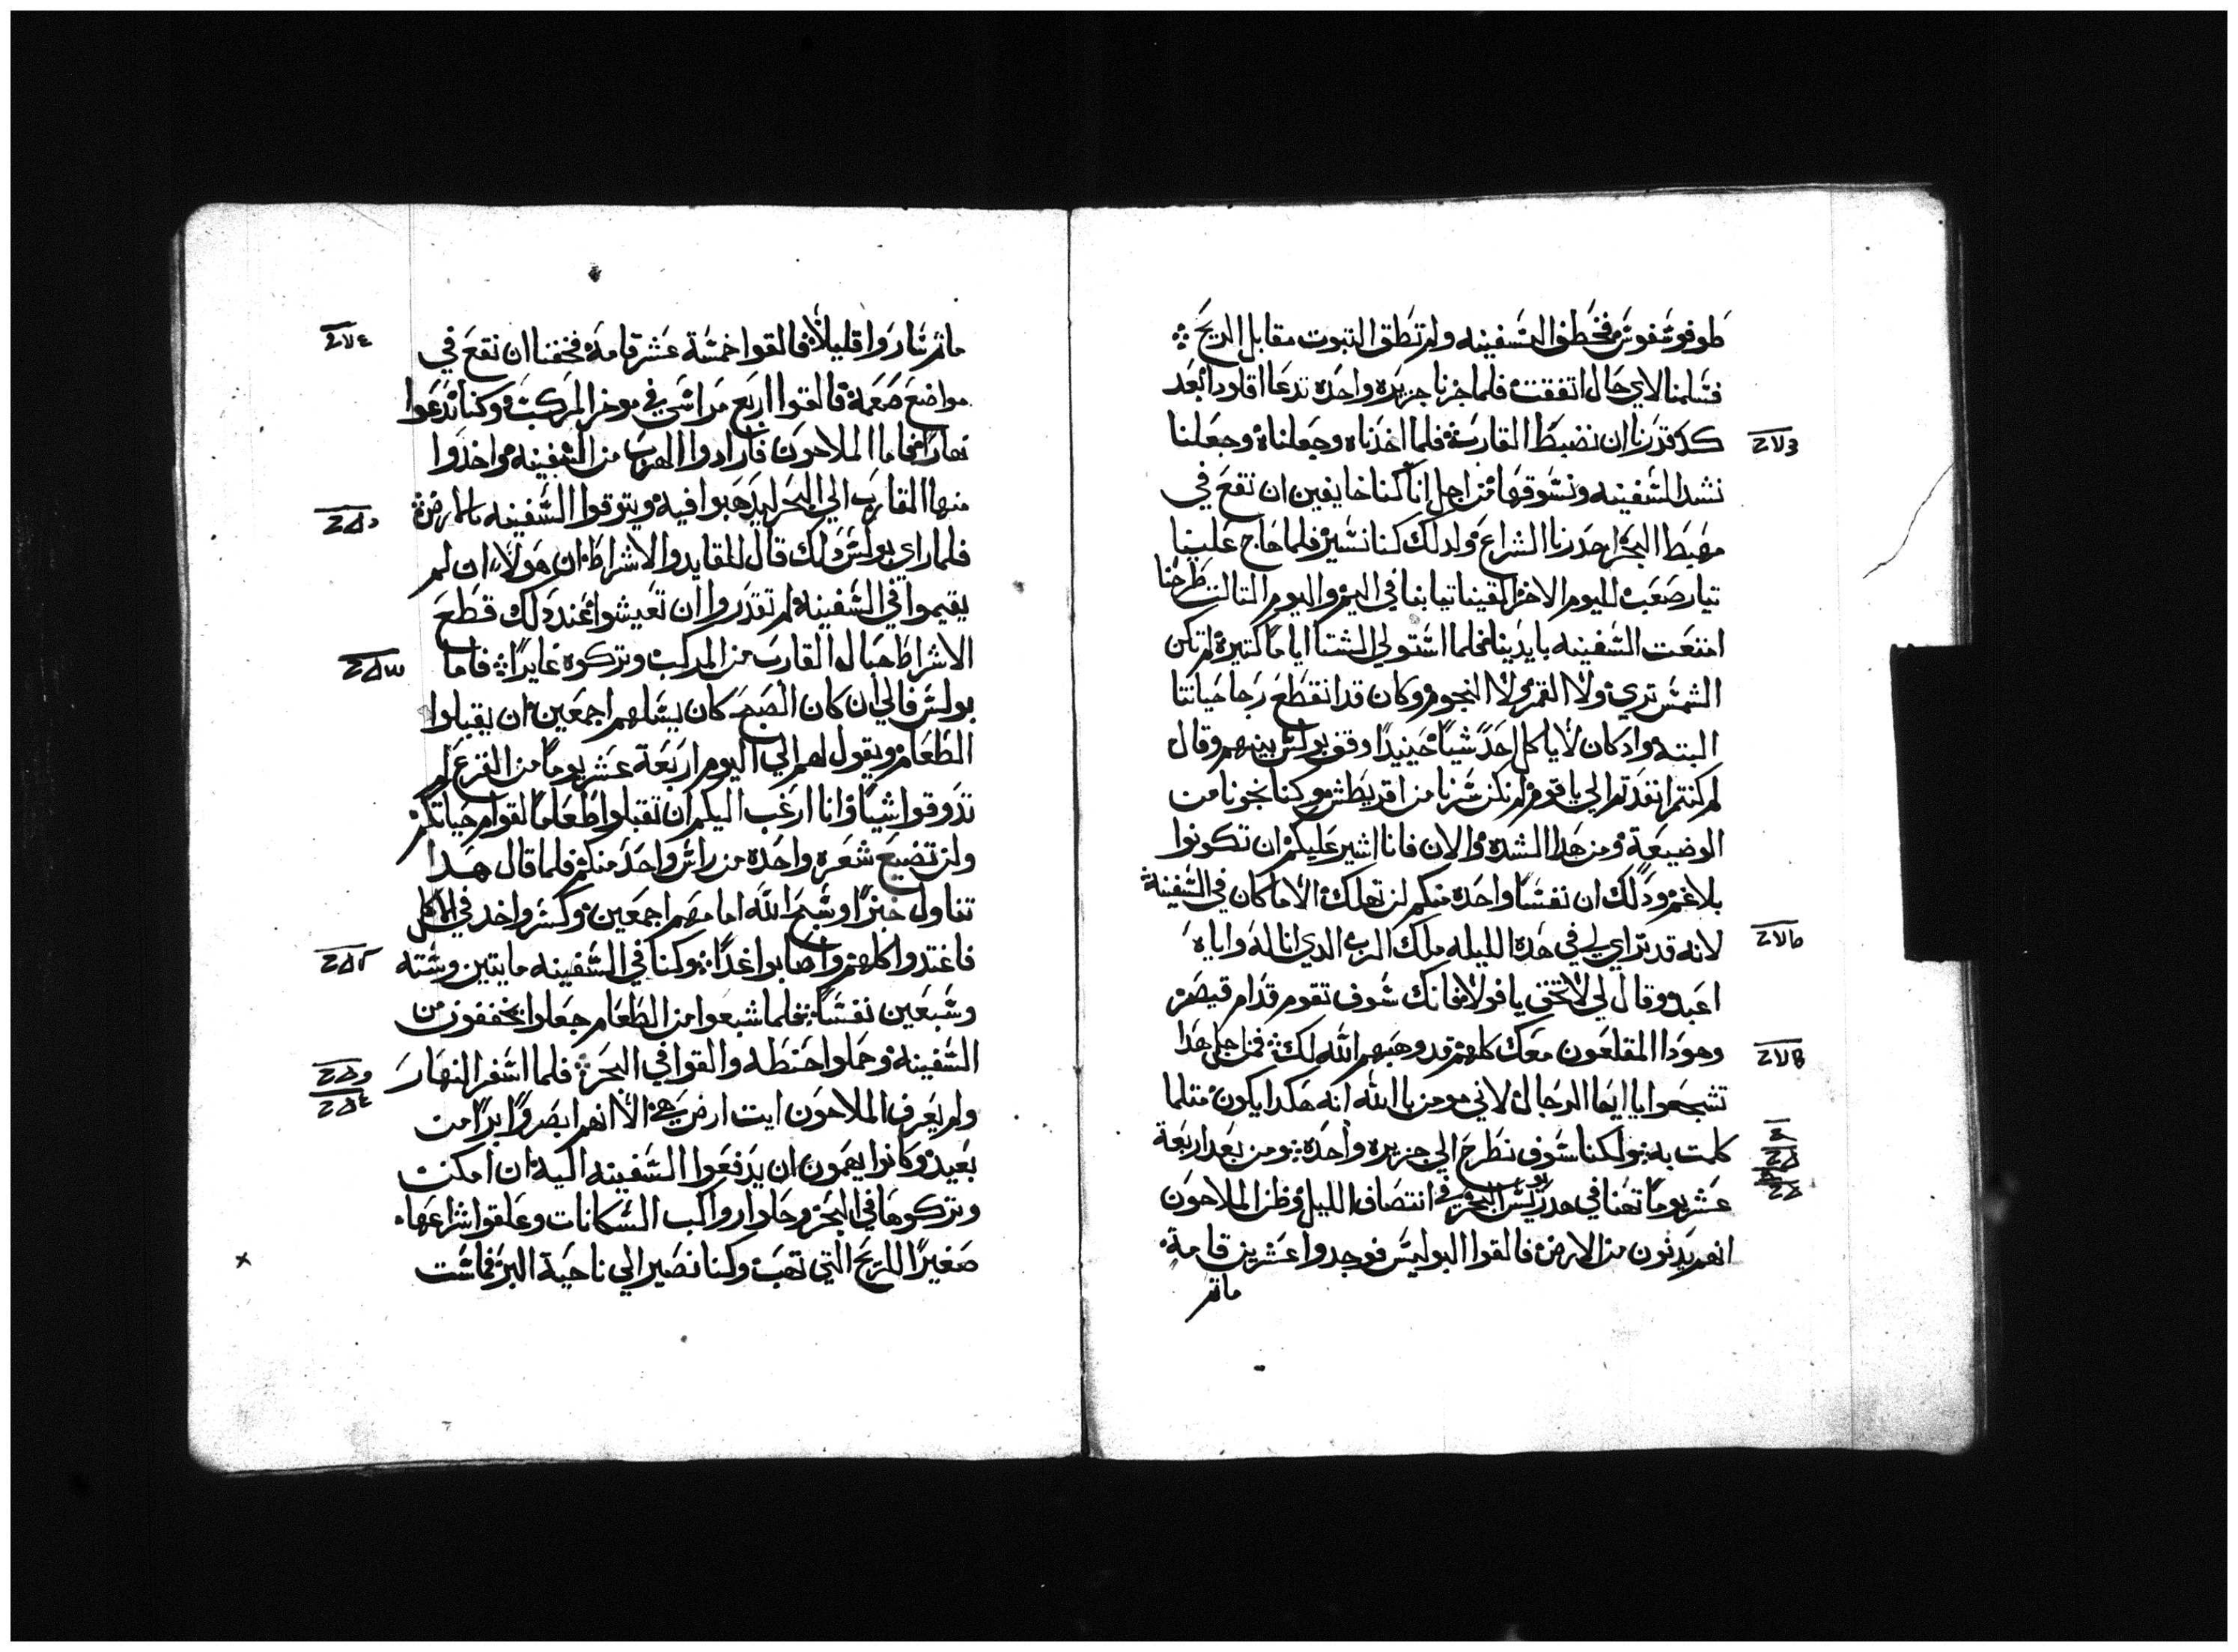 طوفونيقوس فخطف السفينه ولم تطق التبوت مقابل الريح
فسلمنا لاي حال اتفقت فلما جزنا جزيره واحده تدعا اقلودا بعد
كد قدرنا ان نضبط القارب فلما اخدناه وجعلناه وجعلنا
نشد السفينه ونسوقها من اجل انا كنا خايفين ان نقع في
مهبط البحر احدرنا الشراع ولدلك كنا نسير فلما هاج علينا
تيار صعب لليوم الاخر القينا تيابنا في اليم واليوم التالت طرحنا
امتعت السفينه بايدينا فلما استولي الشتا اياما كتيرة لم تكن
الشمس تري ولا القمر ولا النجوم وكان قد انقطع رجا حياتنا
البته واد كان لا ياكل احد شيا حينيدا وقف بولس بينهم وقال
لم كنتم انقدتم الي يا قوم لم نكن سرنا من اقريطش وكنا نجونا من
الوضيعة ومن هدا الشده والان فانا اشير عليكم ان تكونوا
بلا غم ودلك ان نفسا واحده منكم لن تهلك الا ما كان في السفينة
لانه قد تراي لي في هده الليله ملك الرب الدي انا له واياه
اعبد وقال لي لا تخف يا فولا فانك سوف تقوم قدام قيصر
وهودا المقلعون معك كلهم قد وهبهم الله لك فمن اجل هدا
تشجعوا يا ايها الرجال لاني مومن بالله انه هكدا يكون متلما
كلمت به ولكنا سوف نطرح الي جزيره واحده ومن بعد اربعة
عشر يوما تهنا في هدريس البحر في انتصاف الليل وظن الملاحون
انهم يدنون من الارض فالقوا البوليس فوجدوا عشرين قامة
ماتم
ماتم ساروا قليلا فالقوا خمسة عشر قامة فخفنا ان نقع في
مواضع صعبة فالقوا اربع مراسي في موخر المركب وكنا ندعوا
نهارا فاما الملاحون فارادوا الهرب من السفينه واخدوا
منها القارب الي البحر ليدهبوا فيه ويتوقوا السفينه بالارض
فلما راي بولس دلك قال للقايد والاشراط ان هولاء ان لم
يقيموا في السفينة لم تقدروا ان تعيشوا عند دلك قطع
الاشراط حبال القارب من المركب وتركوه غايرا فاما
بولس فالي ان كان الصبح كان يسلهم اجمعين ان يقبلوا
الطعام ويقول لهم الي اليوم اربعة عشر يوما من الفزع لم
تدوقوا شيا وانا ارغب اليكم ان تقبلوا طعاما لقوام حياتكم
ولن تضيع شعره واحده من راس واحد منكم فلما قال هدا
تناول خبزا وسبح الله امامهم اجمعين وكسر واخد في الاكل
فاغتدوا كلهم واصابوا غدا وكنا في السفينه مايتين وسته
وسبعين نفسا فلما شبعوا من الطعام جعلوا يخففون من
السفينة وحملوا حنطه والقوا في البحر فلما اسفر النهار
ولم يعرف الملاحون ايت ارض هي الا انهم ابصروا برا من
بعيد وكانوا يهمون ان يدفعوا السفينه اليه ان امكنت
وتركوها في البحر وحلوا رواكب السكانات وعلقوا شراعها
صغيرا للريح التي تهب وكنا نصير الي ناحية البر فماست